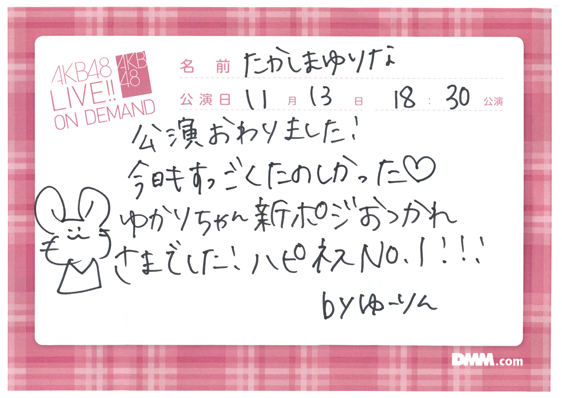 AKB48
LIVE!!
ON DEMAND
AKB
48
名前 たかしまゆりな
公演日 11月13日 18:30公演
公演おわりました!
今日もすっごくたのしかった♡
ゆかりちゃん新ポジおつかれ
さまでした!ハピネスNO.1!!!
byゆーりん
DMM.com